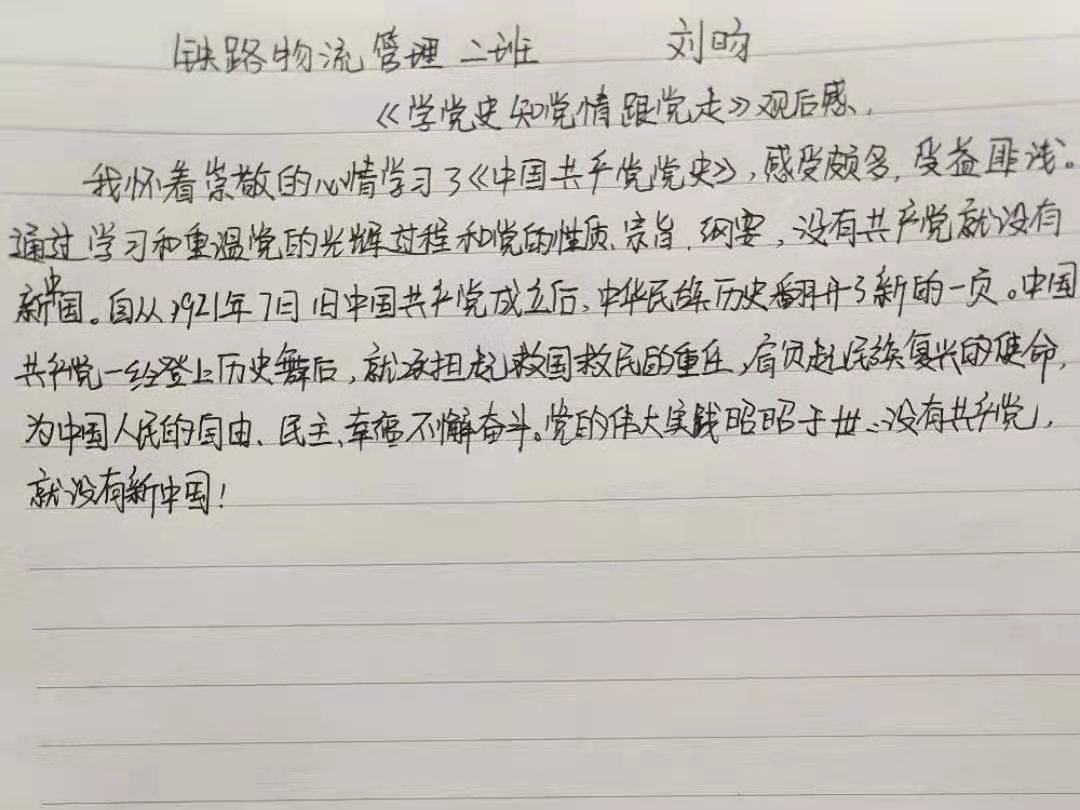 铁路物流管理二班 刘旸
《学党史知党情跟党走》观后感.
我怀着崇敬的心情学习了《中国共产党党史》,感受颇多,受益匪浅。
通过学习和重温党的光辉过程和党的性质、宗旨、纲要,没有共产党就没有
新中国。自从1921年7日1日中国共产党成立后,中华民族历史翻开了新的一页。中国
共产党一经登上历史舞后,就承担起救国救民的重任,肩负起民族复兴的使命,
为中国人民的自由、民主、幸福不懈奋斗。党的伟大实践昭昭于世:没有共产党,
就没有新中国!